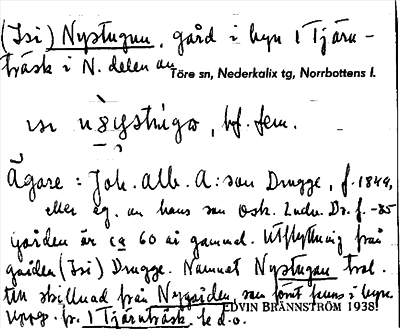 (Isi) Nystugun, gård i byn 1 Tjärn-
träsk i N. delen av Töre sn, Nederkalix tg, Norrbottens l.
bf. fem.
Ägare: Joh. Alb. A:son Drugge, f. 1849,
eller eg. av hans son Osk. Ludv. Dr. f. -85
Gården är ca 60 år gammal. Utflyttning från
gården (Isi) Drugge. Namnet Nystugun trol.
till skillnad från Nygården, som förut fanns i byn.
Uppg. fr. 1 Tjärnträsk, se d.o.
EDVIN BRÄNNSTRÖM 1938!